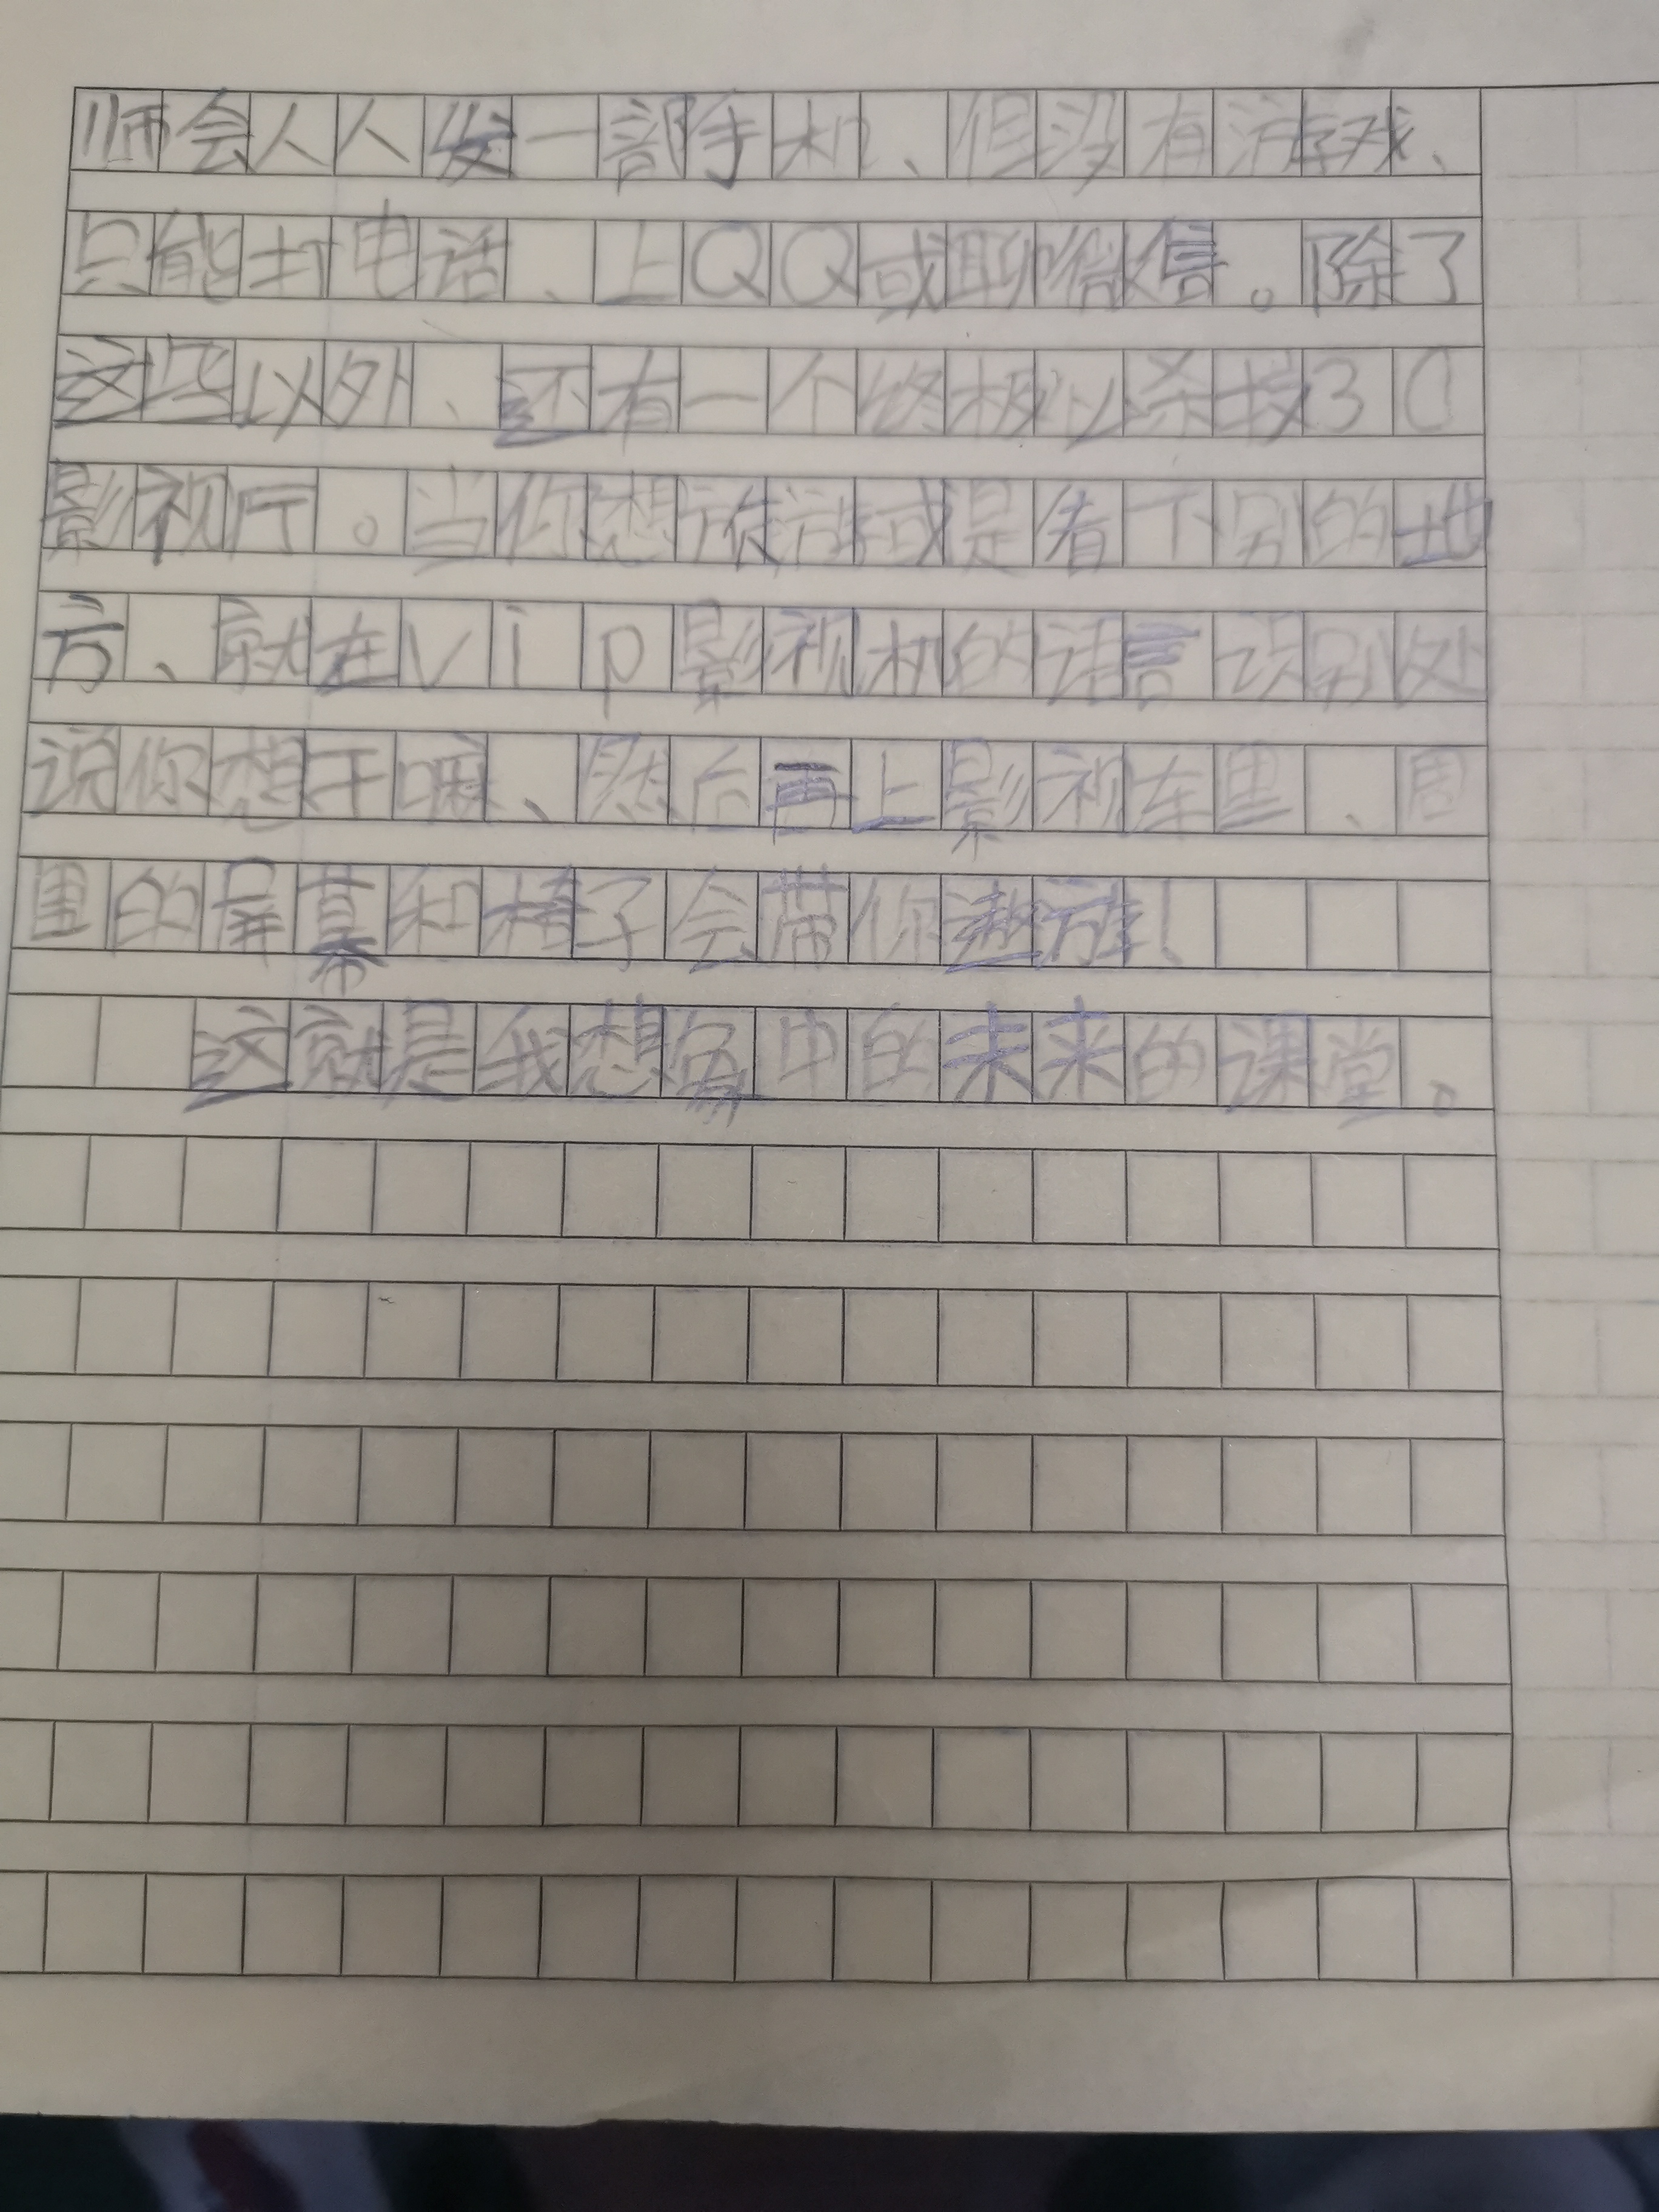 师会人人发一部手机、但没有游戏、
只能打电话、上QQ或聊微信。除了
这些以外、还有一个终极必杀技30
影视厅。当你想旅游或是看下别的地
方、就在vip影视机的语言识别处
说你想干嘛、然后再上影视车里、周
里的屏幕和椅子会带你遨游!
这就是我想象中的未来的课堂。